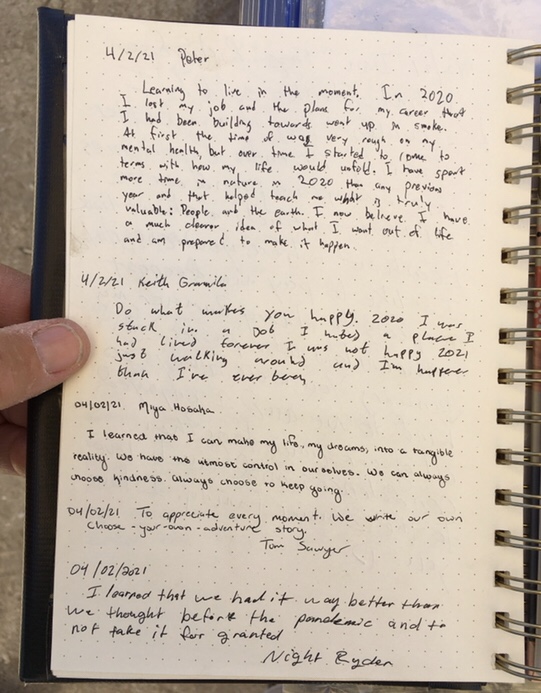 4/2/21 Peter
Learning to live in the moment. In 2020
I lost my job and the plans for my career that
I had been building towards went up in smoke.
At first the time of was very rough on my
mental health, but over time I started to come to
terms with how my life would unfold. I have spent
more time in nature in 2020 than any previous
year and that helped teach me what is truly
valuable: People and the earth. I now believe I have
a much clearer idea of what I want out of life
and am prepared to make it happen.
4/2/21 Keith
Do what makes you happy. 2020 I was
stuck in a Job I hated a place I
had lived forever I was not happy 2021
just walking around and I'm happier
than I've ever been.
04/02/21. Miya Hosaka
I learned that I can make my life, my dreams, into a tangible
reality. We have the utmost control in ourselves. We can always
choose kindness. Always choose to keep going
04/02/21 To appreciate every moment. We write our own
choose-your-own-adventure story.
Tom Sawyer
04/02/2021
I learned that we had it way better than
we thought before the pandemic and to
not take it for granted
Night Ryder